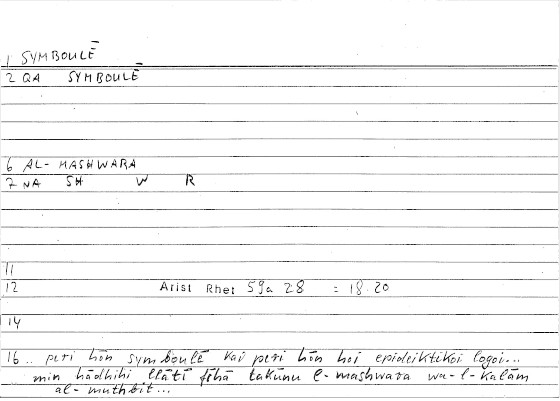 1 SYMBOULĒ
2 QA SYMBOULĒ
6 AL- MASHWARA
7 NA SH W R
11
12 Arist Rhet 59a 28 = 18.20
14
16 .. peri hōn symboulē kai peri hōn hoi epideiktikoi logoi...
min hādhihi llātī fīhā takūnu l-mashwara wa-l-kalām
al-muthbit...